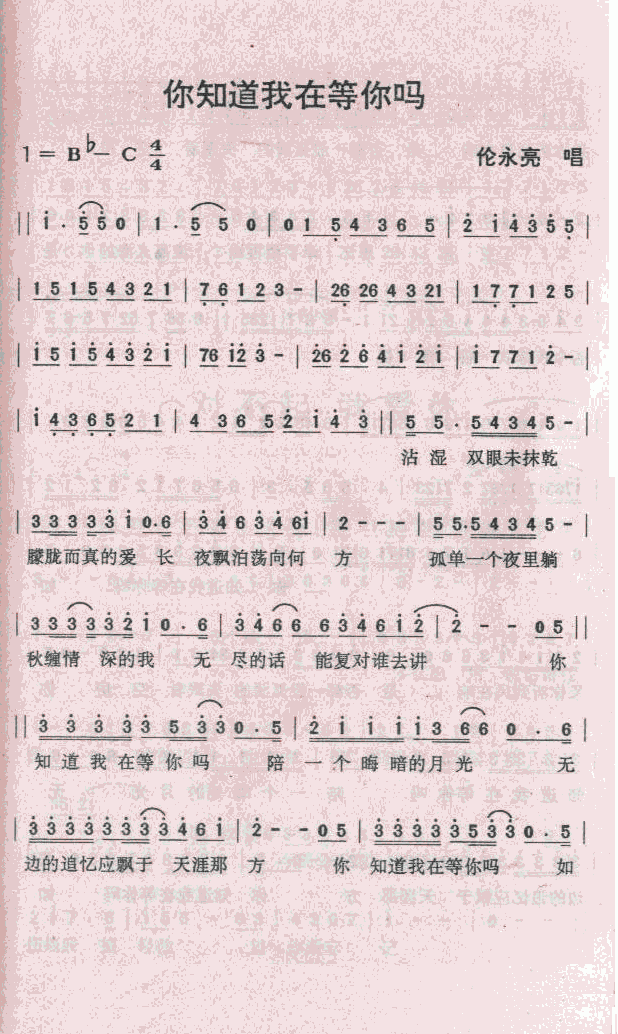 你知道我在等你吗
1 = B♭ — C 4/4 伦永亮 唱
|| i · 5 5 0 | 1 · 5 5 0 | 0 1 5 4 3 6 5 | 2 i 4 3 5 5 |
| 1 5 1 5 4 3 2 1 | 7 6 1 2 3 - | 26 26 4 3 21 | 1 7 7 1 2 5 |
| i 5 i 5 4 3 2 1 | 76 i2 3 - | 26 2 6 4 1 2 1 | i 7 7 1 2 - |
| i 4 3 6 5 2 1 | 4 3 6 5 2 i 4 3 || 5 5 · 5 4 3 4 5 - |
沾 湿 双眼未抹乾
| 3 3 3 3 3 i 0 · 6 | 3 4 6 3 4 6i | 2 - - - | 5 5 · 5 4 3 4 5 - |
朦胧而真的爱 长 夜飘泊荡向何 方 孤单一个夜里躺
| 3 3 3 3 3 2 i 0 · 6 | 3 4 6 6 6 3 4 6 i 2 | 2 - - 0 5 ||
秋缠情 深的我 无 尽的话 能复对谁去讲 你
|| 3 3 3 3 3 5 3 3 0 · 5 | 2 i i i i 3 6 6 0 · 6 |
知 道 我 在等你吗 陪 一个晦暗的月光 无
| 3 3 3 3 3 3 3 3 3 4 6 i | 2 - - 0 5 | 3 3 3 3 3 5 3 3 0 · 5 |
边的道忆应飘于 天涯那 方 你 知道我在等你吗 如